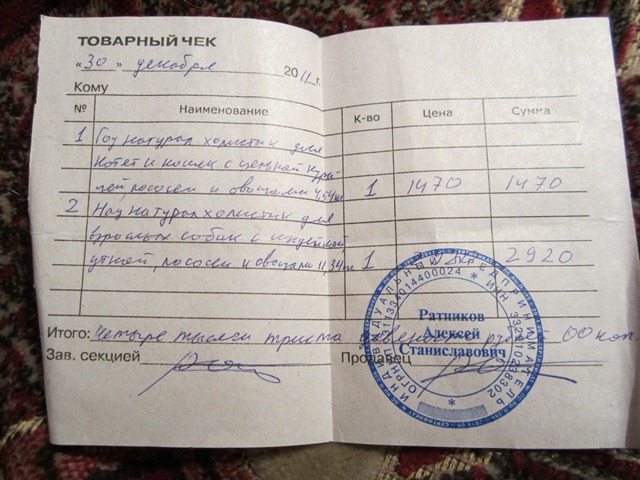 ТОВАРНЫЙ ЧЕК
«30» декабря 2011 г.
Кому
№ Наименование К-во Цена Сумма
1 Гоу натурал холистик для
котят и кошек с цельной кури-
цей, лососем и овощами 4,54 кг 1 1470 1470
2 Нау натурал холистик для
взрослых собак с индейкой
уткой, лососем и овощами 11,34 кг 1 2920
Итого: четыре тысячи триста девяносто рублей 00 коп.
Зав. секцией Продавец
ИНДИВИДУАЛЬНЫЙ ПРЕДПРИНИМАТЕЛЬ
Ратников
Алексей
Станиславович